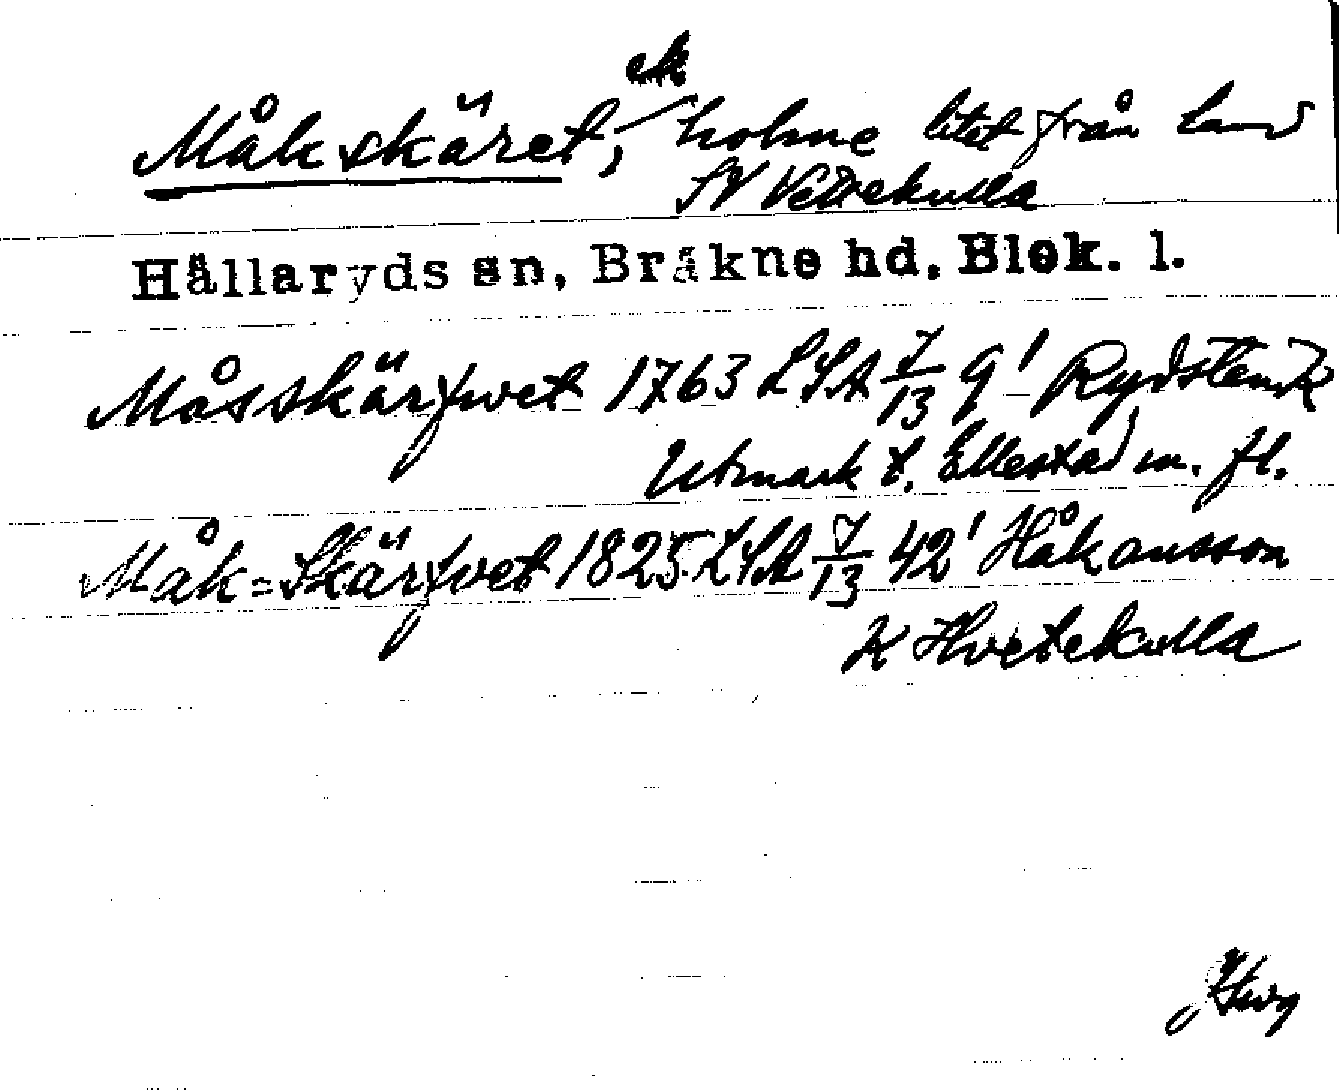 Måkskäret, ek holme litet från land
SV Vettekulla
Hällaryds sn, Bräkne hd, Blek. l.
Måsskärfwet 1763 LSA 7/13 9¹ Rydstenik
Utmark t. Ellestad m. fl.
Måk=Skärfvet 1825 LSA 7/13 42¹ Håkansson
K Hvetekulla